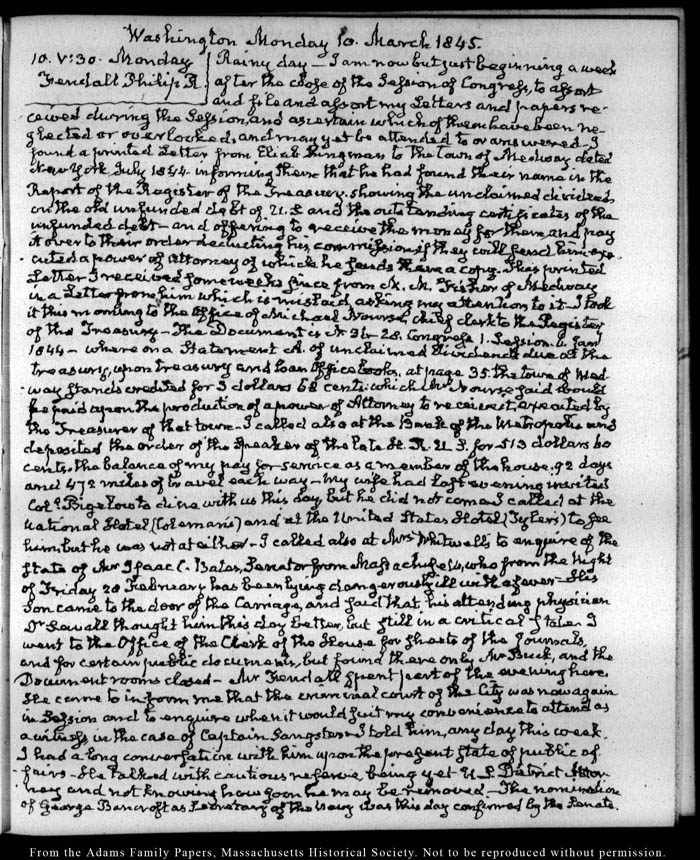 Washington Monday 10. March 1845.
10. V:30. Monday Rainy day — I am now but just beginning a week
Fendall Philip R after the close of the Session of Congress, to assort
and file and assort my Letters and papers re-
ceived during the Session, and ascertain which of them have been ne-
glected or overlooked, and may yet be attended to or answered — I
found a printed Letter from Eliab Kingman to the town of Medway dated
New York July 1844 informing them that he had found their name in the
Report of the Register of the Treasury, showing the unclaimed dividends
on the old unfunded debt of U.S. and the outstanding certificates of the
unfunded debt — and offering to receive the money for them, and pay
it over to their order deducting his commission, if they will send him exe-
cuted a power of attorney of which he sends them a copy. This printed
Letter I received some weeks since from M. M. Fisher of Medway
in a Letter from him which is mislaid, asking my attention to it — I took
it this morning to the Office of Michael Nourse, chief clerk to the Register
of the Treasury — The Document is N. 31 — 28. Congress 1. Session. 4 Jany
1844 — where on a Statement A. of unclaimed dividends due at the
treasury, upon treasury and loan Office books, at page 35. the town of Med-
way stands credited for 5 dollars 68 cents which Mr Nourse said would
be paid upon the production of a power of Attorney to receive it, executed by
the Treasurer of that town. I called also at the Bank of the Metropolis and
deposited the order of the Speaker of the late H. R. U. S. for 513 dollars 60
cents, the balance of my pay for service as a member of the house, 92 days
and 472 miles of travel each way — My wife had last evening invited
Coll. Bigelow to dine with us this day, but he did not come. I called at the
National Hotel (Coleman's) and at the United States Hotel (Tyler's) to see
him, but he was not at either — I called also at Mrs Whitwell's to enquire of the
state of Mr Isaac C. Bates, Senator from Massachusetts, who from the Night
of Friday 28 February has been lying dangerously ill with a fever — His
Son came to the door of the Carriage, and said that his attending physician
Dr Sewall thought him this day better, but still in a critical state. I
went to the Office of the Clerk of the House for sheets of the Journals,
and for certain public documents, but found there only Mr Buck, and the
Document rooms closed — Mr Fendall spent part of the evening here
He came to inform me that the criminal court of the City was now again
in Session and to enquire when it would suit my convenience to attend as
a witness in the case of Captain Sangster — I told him, any day this week.
I had a long conversation with him upon the present state of public af-
fairs — He talked with cautious reserve, being yet U.S. District Attor-
ney and not knowing how soon he may be removed — The nomination
of George Bancroft as Secretary of the Navy was this day confirmed by the Senate.
From the Adams Family Papers, Massachusetts Historical Society. Not to be reproduced without permission.